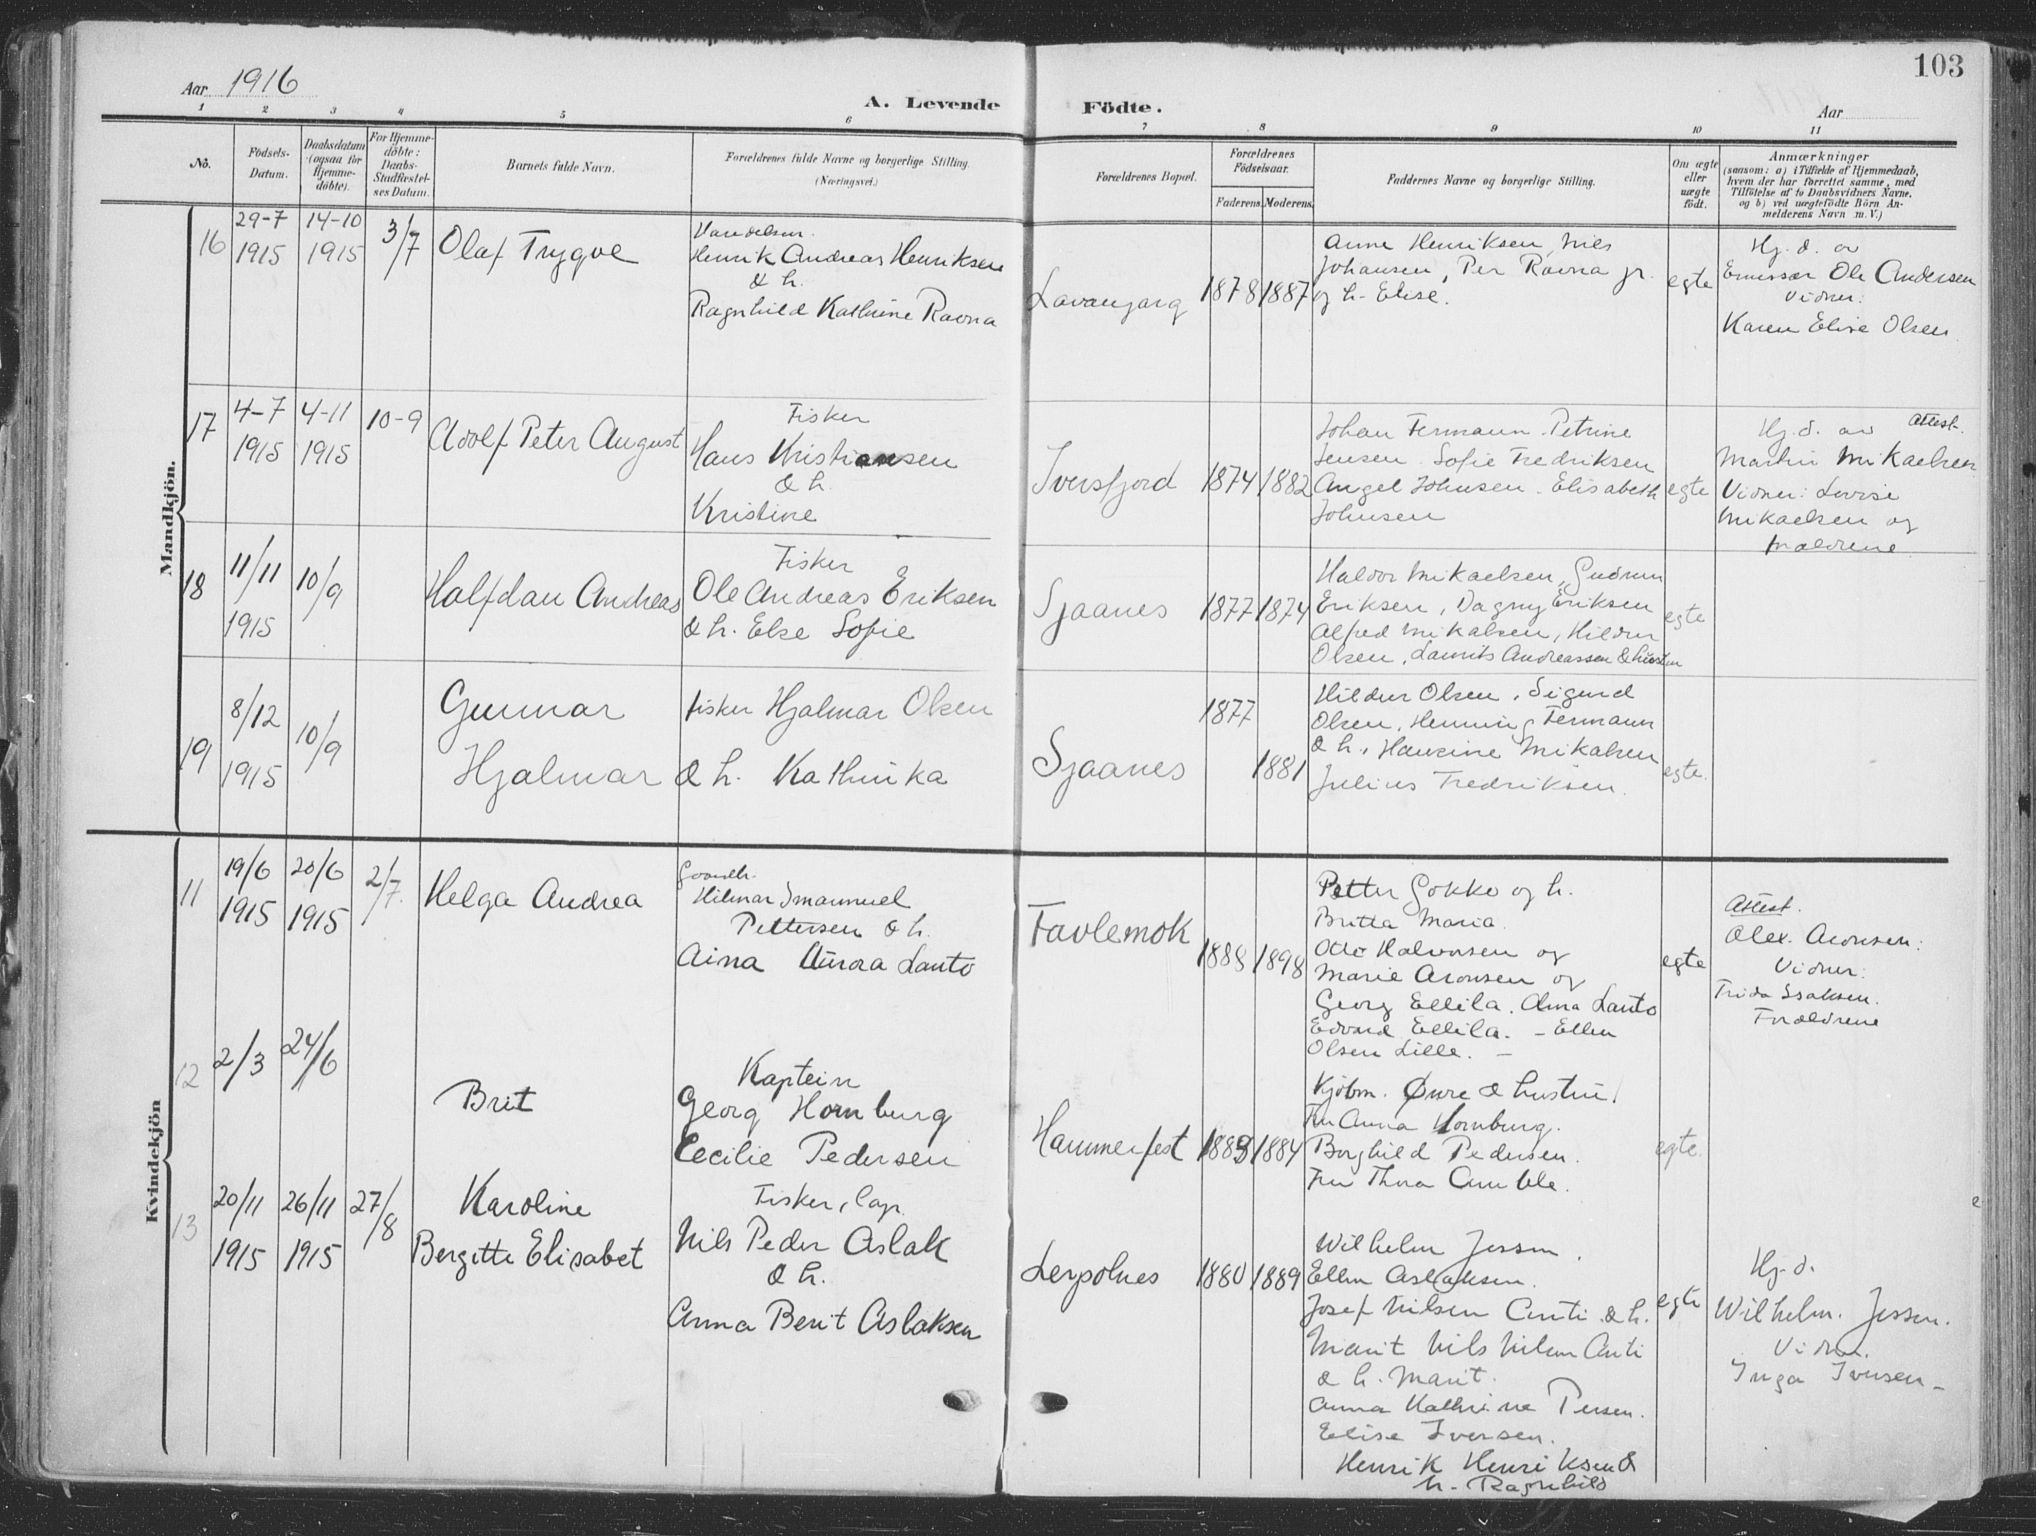 103
Aar 1916
A. Levende
Födte.
Aar
1 2 3 4 5 6 7 8 9 10 11
No.
Födsels-
Datum.
Daabsdatum
(ogsaa for
Hjemme-
döbte).
For Hjemme-
döbte:
Daabs-
Stadfestel-
ses Datum.
Barnets fulde Navn.
Forældrenes fulde Navne og borgerlige Stilling.
(Næringsvei.)
Forældrenes Bopæl.
Forældrenes
Födselsaar.
Faderens.
Moderens.
Faddernes Navne og borgerlige Stilling.
Om ægte
eller
uægte
födt.
Anmærkninger
(saasom: a) i Tilfælde af Hjemmedaab,
hvem der har forrettet samme, med
Tilföielse af to Daabsvidners Navne,
og b) ved uægtefödte Börn An-
melderens Navn m. V.)
Mandkjön.
16
29-7
1915
14-10
1915
3/7
Olaf Trygve
Henrik Andreas Henriksen
& h.
Ragnhild Kathrine Ravna
Lavangarg
1878
1887
Anne Henriksen, Nils
Johansen, Per Ravna jr.
og h. Elise.
egte
Hj. d. av
Emissær Ole Andersen
Vidner:
Karen Elise Olsen
17
4-7
1915
4-11
1915
10-9
Adolf Peter August
Fisker
Hans Kristiansen
& h.
Kristine
Iversfjord
1874
1882
Johan Fermann. Petrine
Jensen. Sofie Fredriksen
Angel Johnsen. Elisabeth
Johnsen
egte
Hj. d. av Attest.
Martin Mikaelsen
Vidner: Lovise
Mikaelsen og
Forældrene.
18
11/11
1915
10/9
Halfdan Andreas
Fisker
Ole Andreas Eriksen
& h. Else Sofie
Sjaanes
1877
1874
Haldor Mikaelsen, Gudrun
Eriksen, Dagny Eriksen
Alfred Mikalsen, Hildur
Olsen, Laurits Andreassen & hustru
egte
19
8/12
1915
10/9
Gunnar
Hjalmar
Fisker Hjalmar Olsen
& h. Kathinka
Sjaanes
1877
1881
Hildur Olsen, Sigurd
Olsen, Henning Fermann
& h., Hansine Mikalsen
Julius Fredriksen.
egte.
Kvindekjön
11
19/6
1915
20/6
1915
2/7.
Helga Andrea
Gaardb.
Hilmar Imanuel
Pettersen & h.
Aina Aurora Lanto
Favlemok
1888
1898
Petter Gokko og h.
Britta Maria.
Otto Halvorsen og
Marie Aronsen og
Georg Ellila. Alma Lanto
Edvard Ellila. - Ellen
Olsen Lille. -
egte
Attest.
Alex. Aronsen:
Vidner:
Frida Isaksen.
Forældrene
12
2/3
24/6
Brit
Kaptein
Georg Hornburg
Cecilie Pedersen
Hammerfest
1883
1884
Kjöbm. Øwre & hustru.
Fru Anna Hornburg.
Borghild Pedersen.
Fru Thora Amble.
egte.
13
20/11
1915
26/11
1915
27/8
Karoline
Bergitte Elisabet
Fisker, lap.
Nils Peder Aslak
& h.
Anna Berit Aslaksen
Lerpolnes
1880
1889
Wilhelm Jessen.
Ellen Aslaksen.
Josef Nilsen Anti & h.
Marit Nils Nilsen Anti
& h. Marit.
Anna Kathrine Persen.
Elise Iversen.
Henrik Henriksen &
h. Ragnhild
egte
Hj. d.
Wilhelm Jessen.
Vidner.
Inga Iversen -